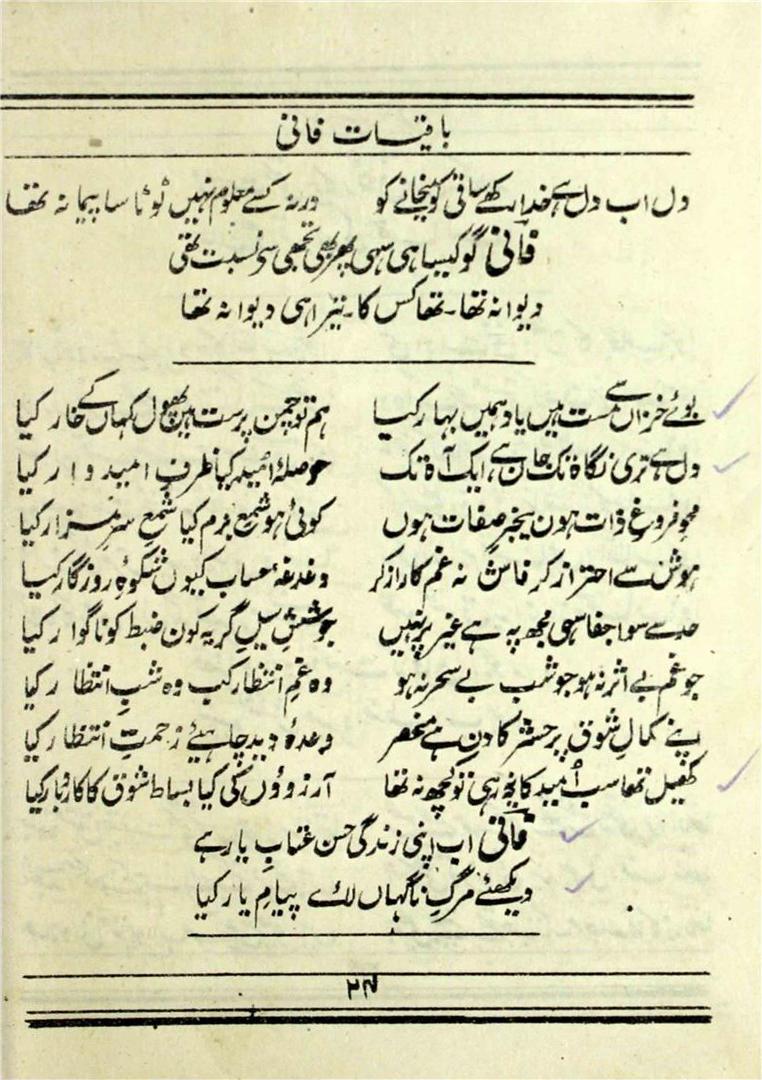 باقیات فانی
دل اب دل ہے خدا رکھے ساقی کو میخانے کو ورنہ کسے معلوم نہیں ٹوٹا سا پیمانہ تھا
فانی گو کیسا ہی سہی پھر بھی تجھی سے نسبت تھی
دیوانہ تھا۔ تھا کس کا۔ تیرا ہی دیوانہ تھا
بوئے خزاں سے مست ہیں یاد ہمیں بہار کیا ہم تو چمن پرست ہیں پھول کہاں کے خار کیا
دل ہے تری نگاہ تک جان ہے ایک آہ تک حوصلۂ امید کیا ظرفِ امیدوار کیا
محوِ فروغِ ذات ہوں بیخبرِ صفات ہوں کوئی ہو شمعِ بزم کیا شمعِ سرِ مزار کیا
ہوش سے احتراز کر فاش نہ غم کا راز کر دغدغۂ حساب کیوں شکوۂ روزگار کیا
حد سے سوا جفا سہی مجھ پہ ہے غیر پر نہیں جوششِ سیلِ گریہ کون ضبط کو ناگوار کیا
جو غم بے اثر نہ ہو جو شب بے سحر نہ ہو وہ غمِ انتظار کب وہ شبِ انتظار کیا
اپنے کمالِ شوق پر حشر کا دن ہے منحصر وعدۂ دید چاہیئے زحمتِ انتظار کیا
کھیل تھا سب اُمید کا یہ نہ رہی تو کچھ نہ تھا آرزوؤں کی کیا بساط شوق کا کاروبار کیا
فانی اب اپنی زندگی حسن عتابِ یار ہے
دیکھئے مرگِ ناگہاں لائے پیامِ یار کیا
۲۴